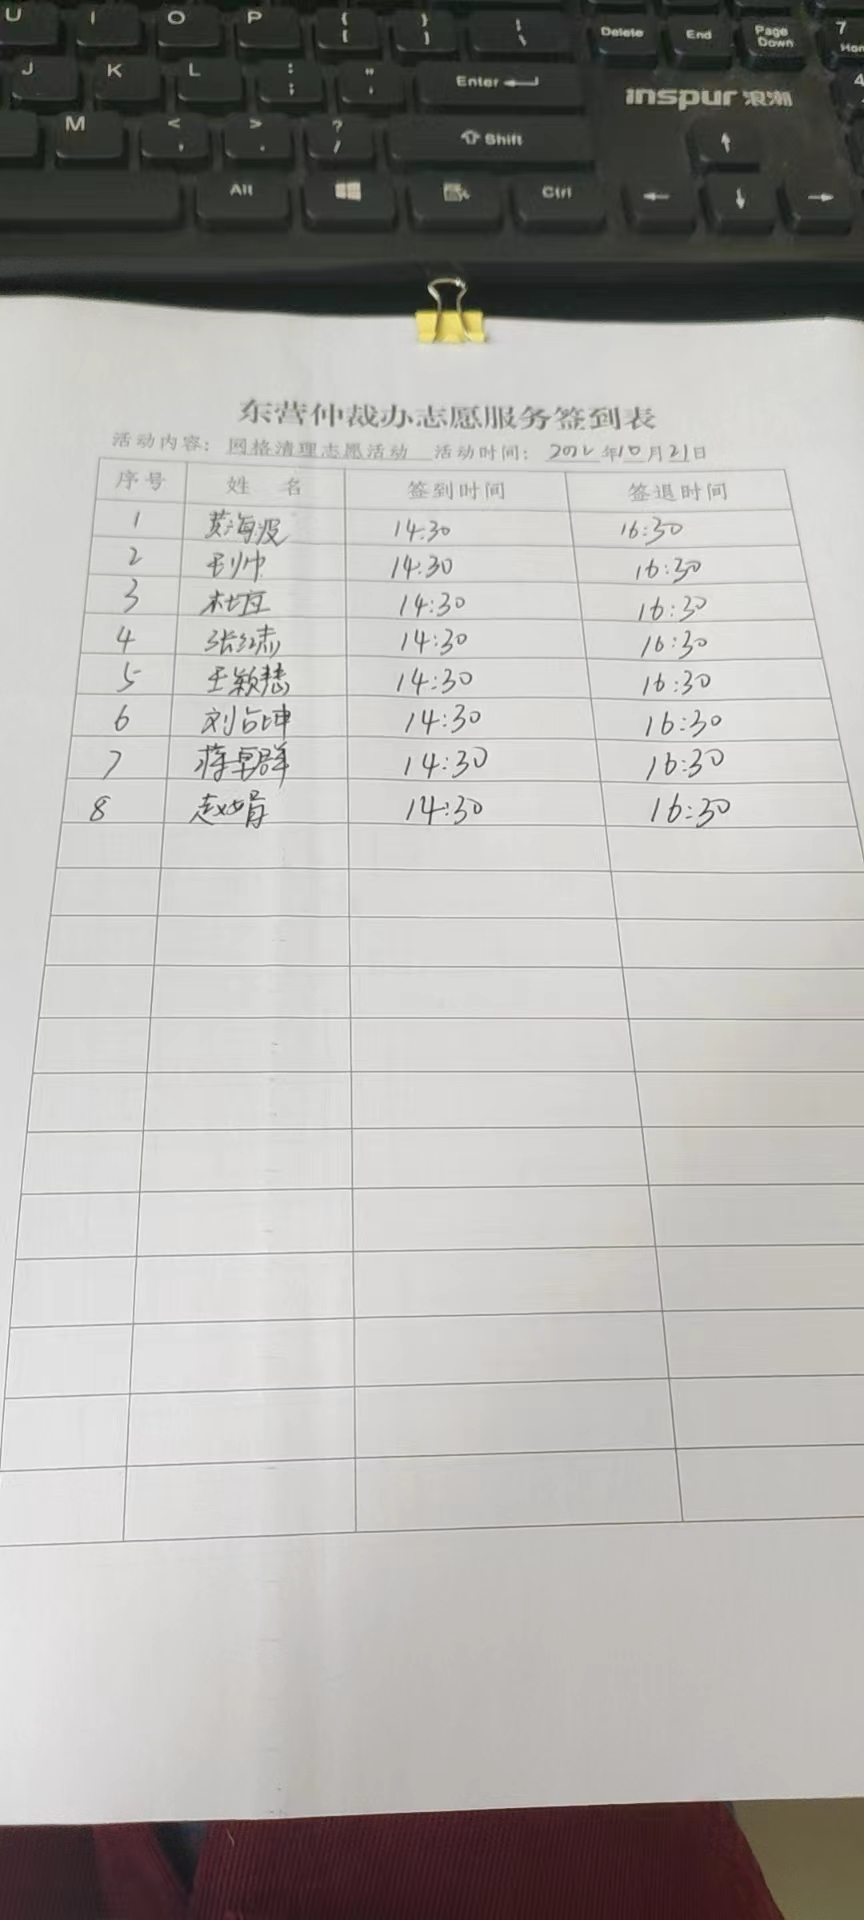 U I O P { [ } ] | \ Delete End Page Down 7 Hom
J K L : ; " ' Enter 4
inspur 浪潮
M < , > . ? / Shift
Alt Ctrl
东营仲裁办志愿服务签到表
活动内容: 网格清理志愿活动 活动时间: 2022年10月21日
序号 姓 名 签到时间 签退时间
1 黄海波 14:30 16:30
2 14:30 16:30
3 14:30 16:30
4 张红焘 14:30 16:30
5 王颖慧 14:30 16:30
6 刘占坤 14:30 16:30
7 蒋卓群 14:30 16:30
8 赵娟 14:30 16:30